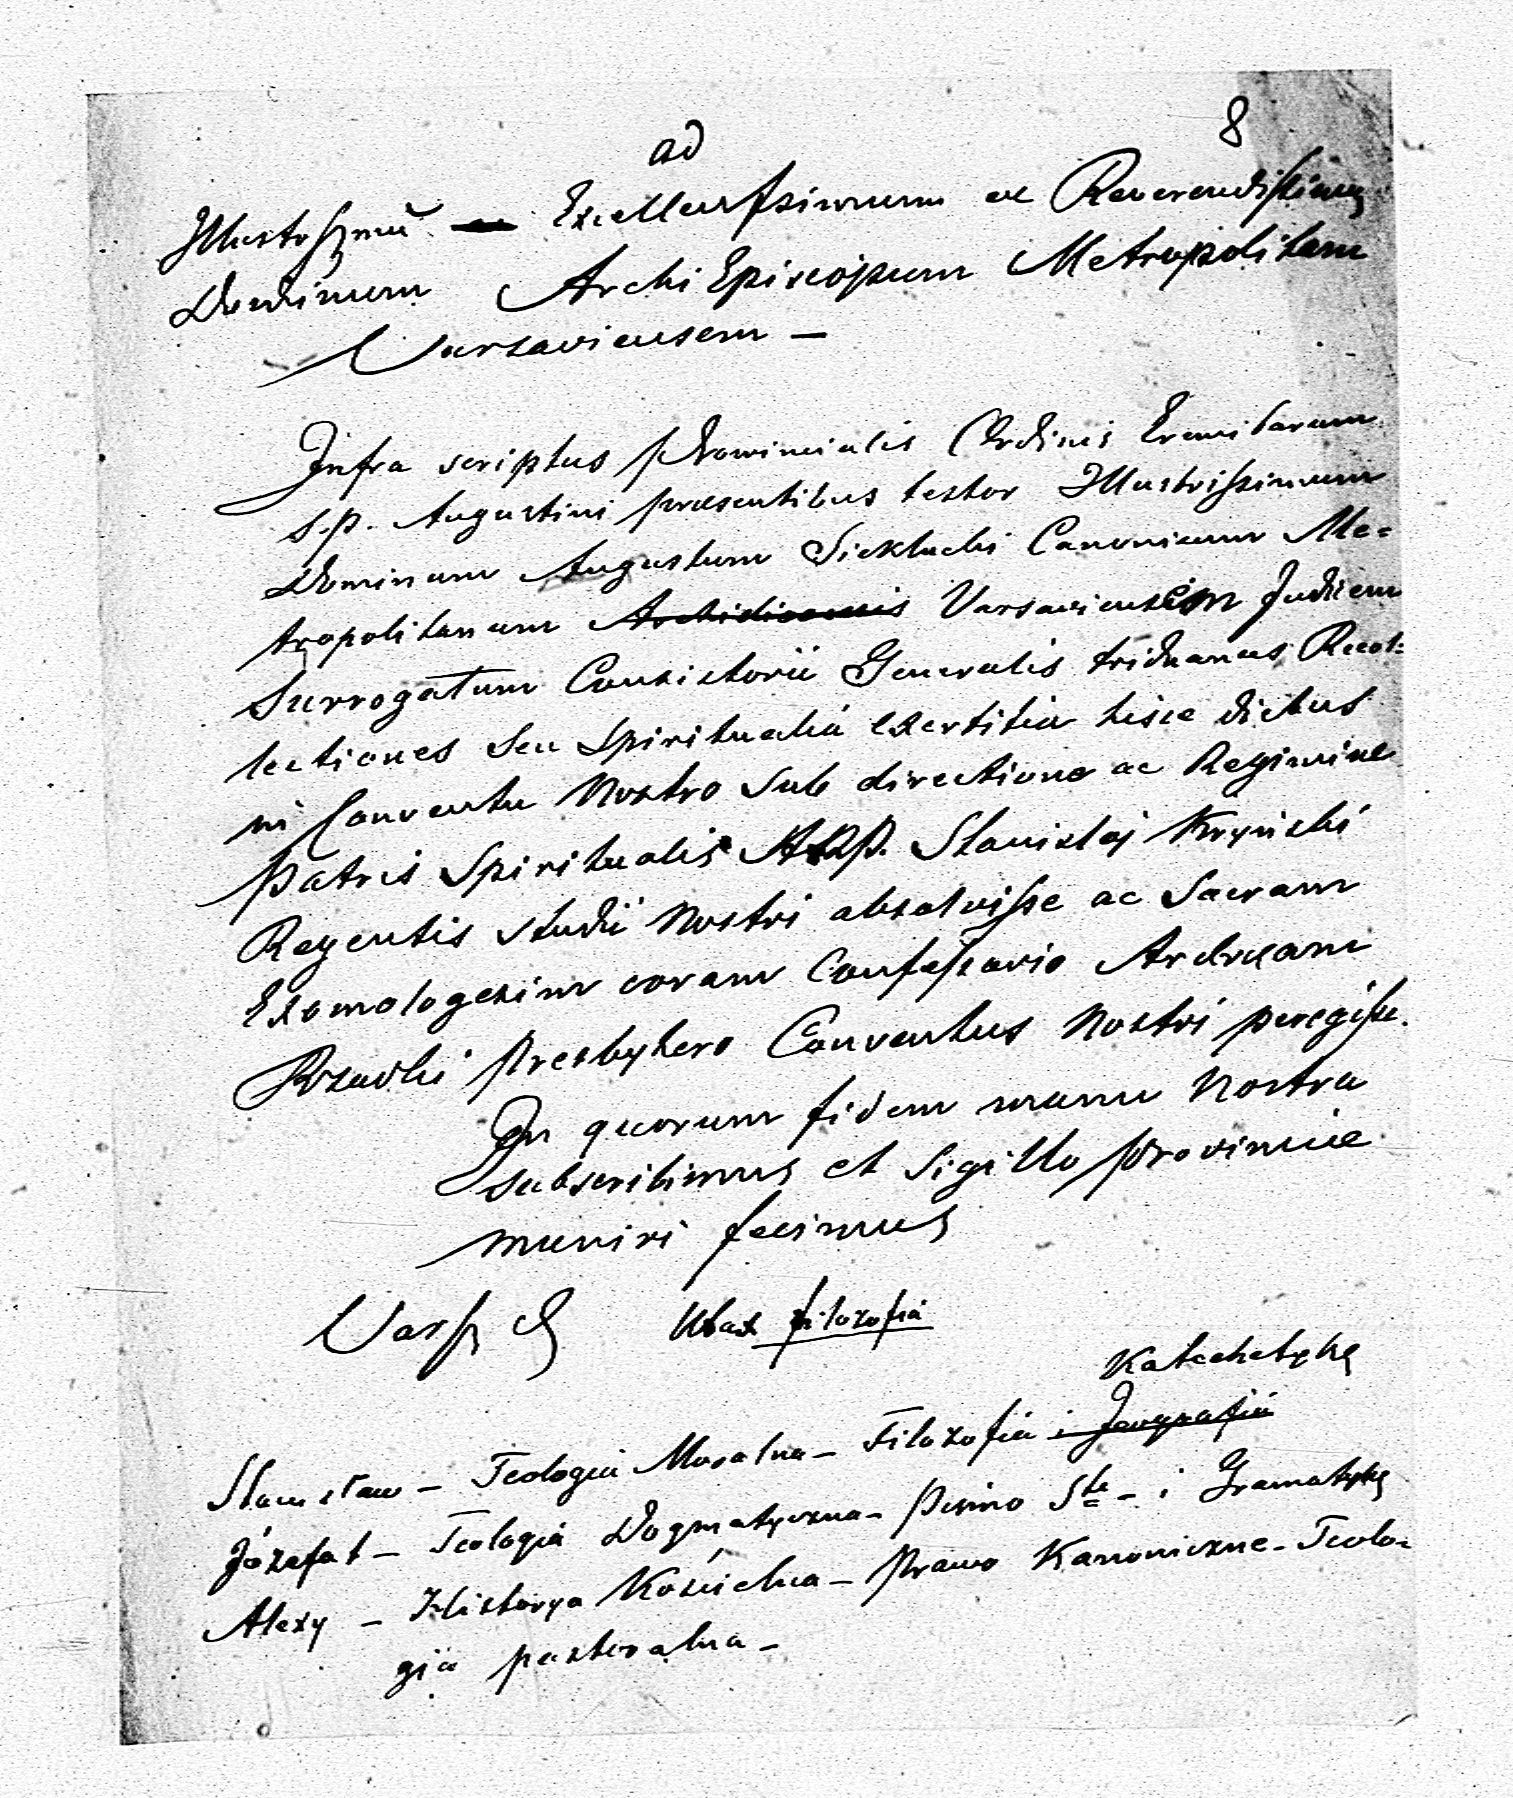 8
ad
Illustrssmū Excellentssimum ac Reverendissimum
Dominum Archi Episcopum Metropolitam
Varsaviensem –
Infra scriptus Provincialis Ordinis Eremitarum
S. P. Augustini praesentibus testor Illustrissimum
Dominum Augustum Siekluchi Canonicum Me=
tropolitanum Archidiocesis Varsaviensem Judicem
Surrogatum Consistorii Generalis triduanas Recol=
lectiones seu Spiritualia exertitia hisce diebus
in Conventu Nostro sub directione ac Regimine
Patris Spiritualis A.R.P. Stanislaj Krynishi
Regentis Studii Nostri absolvisse ac Sacram
Exomologesim coram Confessario
Presbytero Conventus Nostri peregisse.
In quorum fidem manu Nostra
subscribimus et Sigillo Provinciae
muniri fecimus
Vars d filozofia
Katechetykę
Stanisław – Teologia Moralna – Filozofia i Jeografia
Józefat – Teologia Dogmatyczna – Pismo Ste – i Gramatykę
Alexy – Historya Kościelna – Prawo Kanoniczne – Teolo=
gia pastoralna –